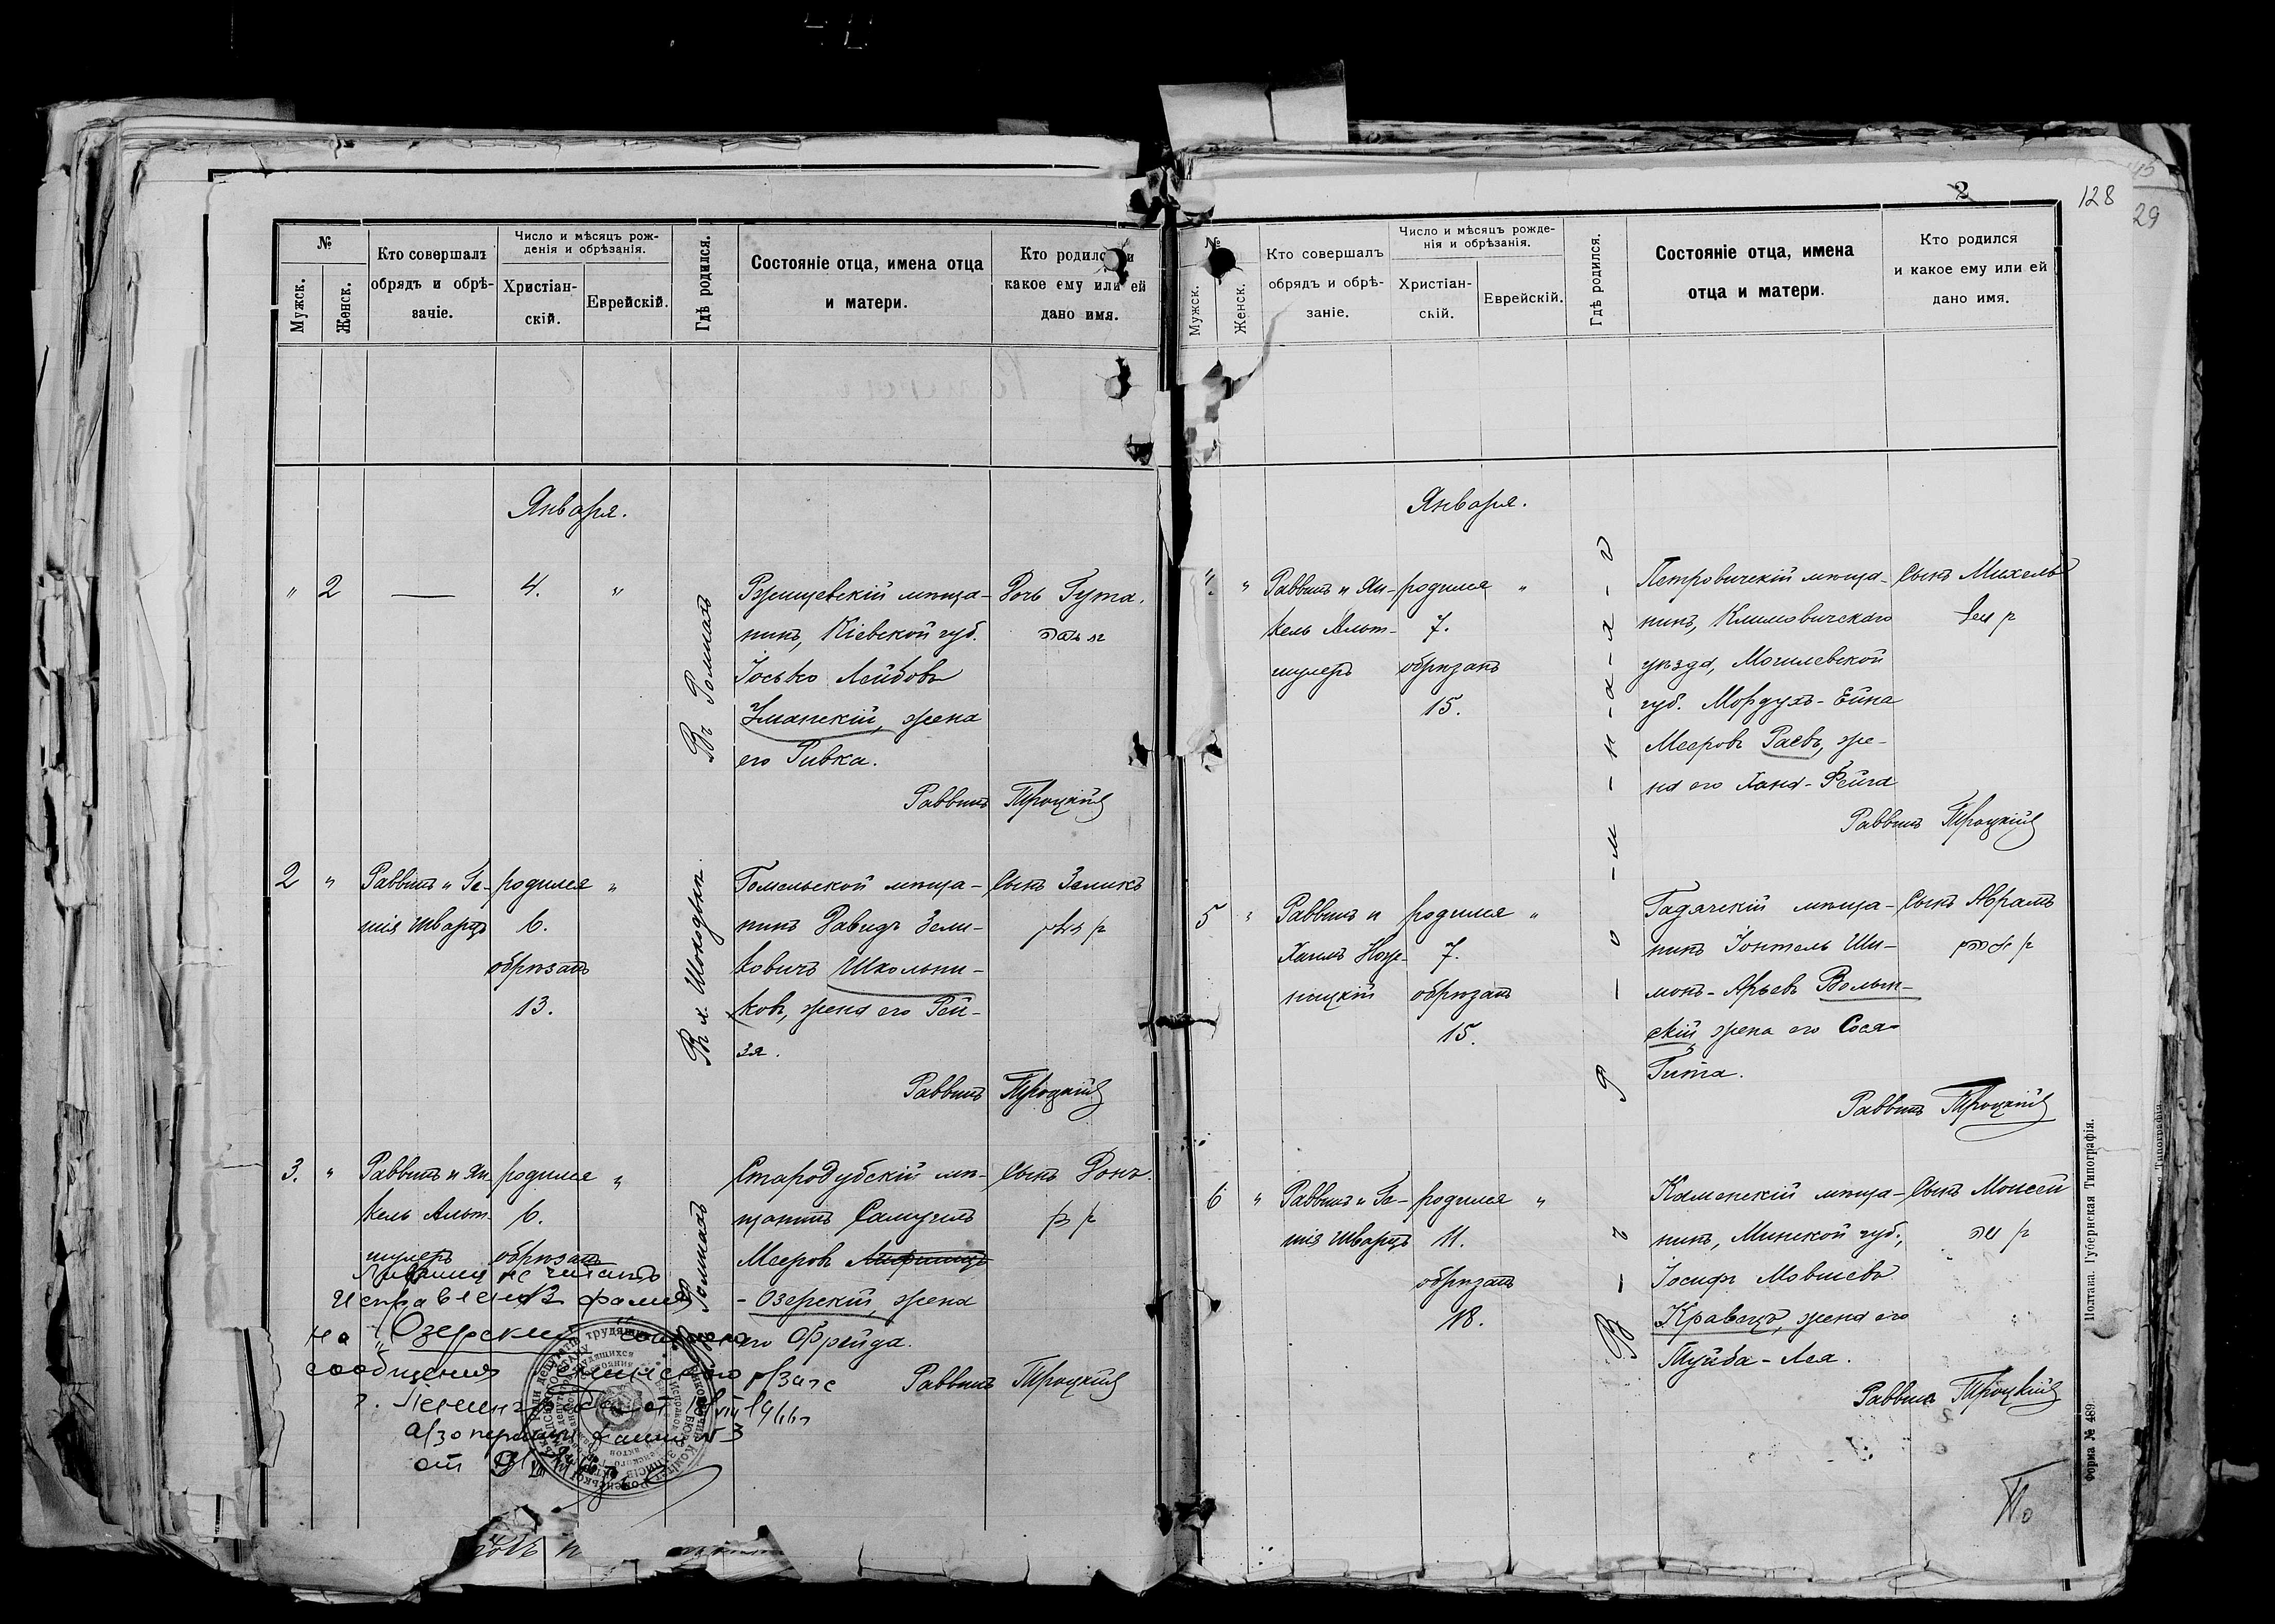 №
Мужск.
Женск.
Кто совершалъ
обрядъ и обрѣ-
заніе.
Число и мѣсяцъ рож-
денія и обрѣзанія.
Христіан-
скій.
Еврейскій.
Гдѣ родился.
Состояніе отца, имена отца
и матери.
Кто родился и
какое ему или ей
дано имя.
Января.
" 2
4. "
Въ Ромнахъ
Ржищевскій мѣща-
нинъ, Кіевской губ.
Іосько Лейбовъ
Уманскій, жена
его Ривка.
Дочь Гута.
Раввинъ Троцкій
2 "
Раввинъ и Ге-
шія Шварцъ
родился "
6.
обрѣзанъ
13.
Гомельской мѣща-
нинъ Давидъ Зели-
ковичъ Школьни-
ковъ, жена его Рей-
зя.
Сынъ Зеликъ
Раввинъ Троцкій
3. "
Раввинъ и Ян-
кель Альт-
шулеръ
родился "
6.
обрѣзанъ
Ромнахъ
Стародубскій мѣ-
щанинъ Самуилъ
Мееровъ
- Озерскій, жена
его Фрейда.
Сынъ Донъ.
Раввинъ Троцкій
не читать
на "Озерский"
сообщения
2
128
29
№
Мужск.
Женск.
Кто совершалъ
обрядъ и обрѣ-
заніе.
Число и мѣсяцъ рожде-
нія и обрѣзанія.
Христіан-
скій.
Еврейскій.
Гдѣ родился.
Состояніе отца, имена
отца и матери.
Кто родился
и какое ему или ей
дано имя.
Января.
4. "
Раввинъ и Ян-
кель Альт-
шулеръ
родился "
7.
обрѣзанъ
15.
Петровичскій мѣща-
нинъ, Климовичскаго
уѣзда, Могилевской
губ. Мордухъ-Ейна
Мееровъ Раевъ, же-
на его Хана-Фейга
Сынъ Михель
Раввинъ Троцкій
5 "
Раввинъ и
родился "
7.
обрѣзанъ
15.
Гадячскій мѣща-
нинъ Іонтель Ши-
монъ-Арьевъ Волын-
скій, жена его Сося-
Гита.
Сынъ Абрамъ
Раввинъ Троцкій
6 "
Раввинъ и Ге-
шія Шварцъ
родился "
11.
обрѣзанъ
18.
Каменскій мѣща-
нинъ, Минской губ.,
Іосифъ Мовшевъ
Кравецъ, жена его
Туйба-Лея.
Сынъ Моисей
Раввинъ Троцкій
По
Форма № 489. Полтава. Губернская Типографія.